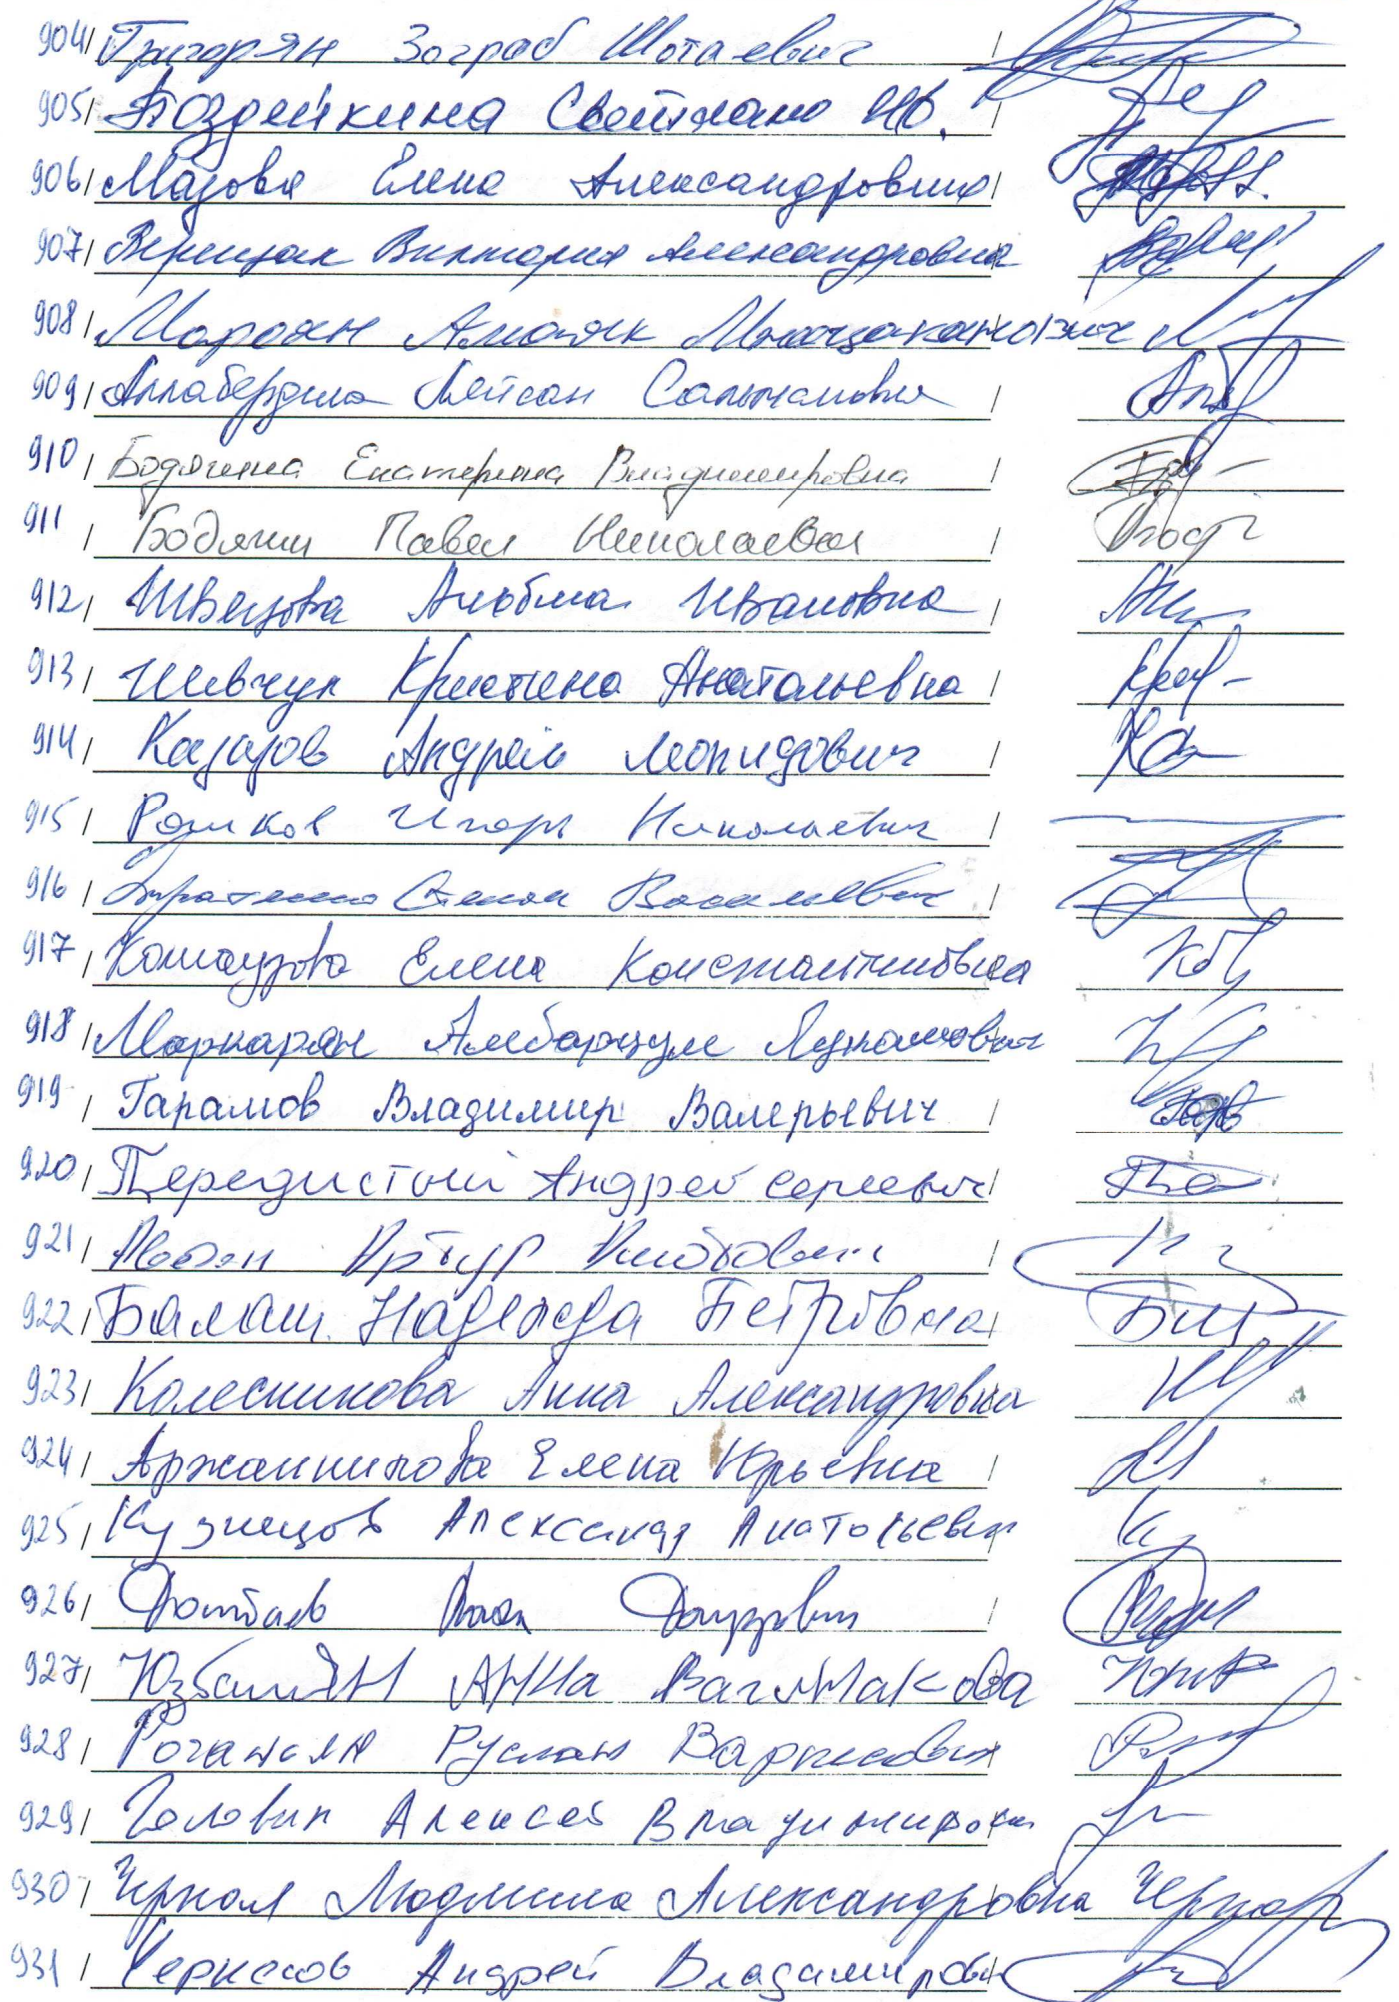 904 Григорян Зограб Шотаевич
905 Поздейкина Светлана
906 Мазовя Елена Александровна
907 Верещак Виктория Александровна
908 Мароян Амаяк Мнацаканович
909 Аллабердина Лейсан
910 Бодягина Екатерина Владимировна
911 Бодягин Павел Николаевич
912 Швецова Альбина Ивановна
913 Шевчук Кристина Анатольевна
914 Казазов Андрей Леонидович
915 Рожков Игорь Николаевич
916 Степан Васильевич
917 Елена Константиновна
918 Маркарян Амбарцум
919 Гарамов Владимир Валерьевич
920 Передистый Андрей Сергеевич
921 Артур
922 Балаш Надежда Петровна
923 Колесникова Анна Александровна
924 Аржанникова Елена Юрьевна
925 Кузнецов Александр Анатольевич
926
927 Юзбашян Анна
928 Руслан
929 Головин Алексей Владимирович
930 Черная Людмила Александровна
931 Черкасов Андрей Владимирович